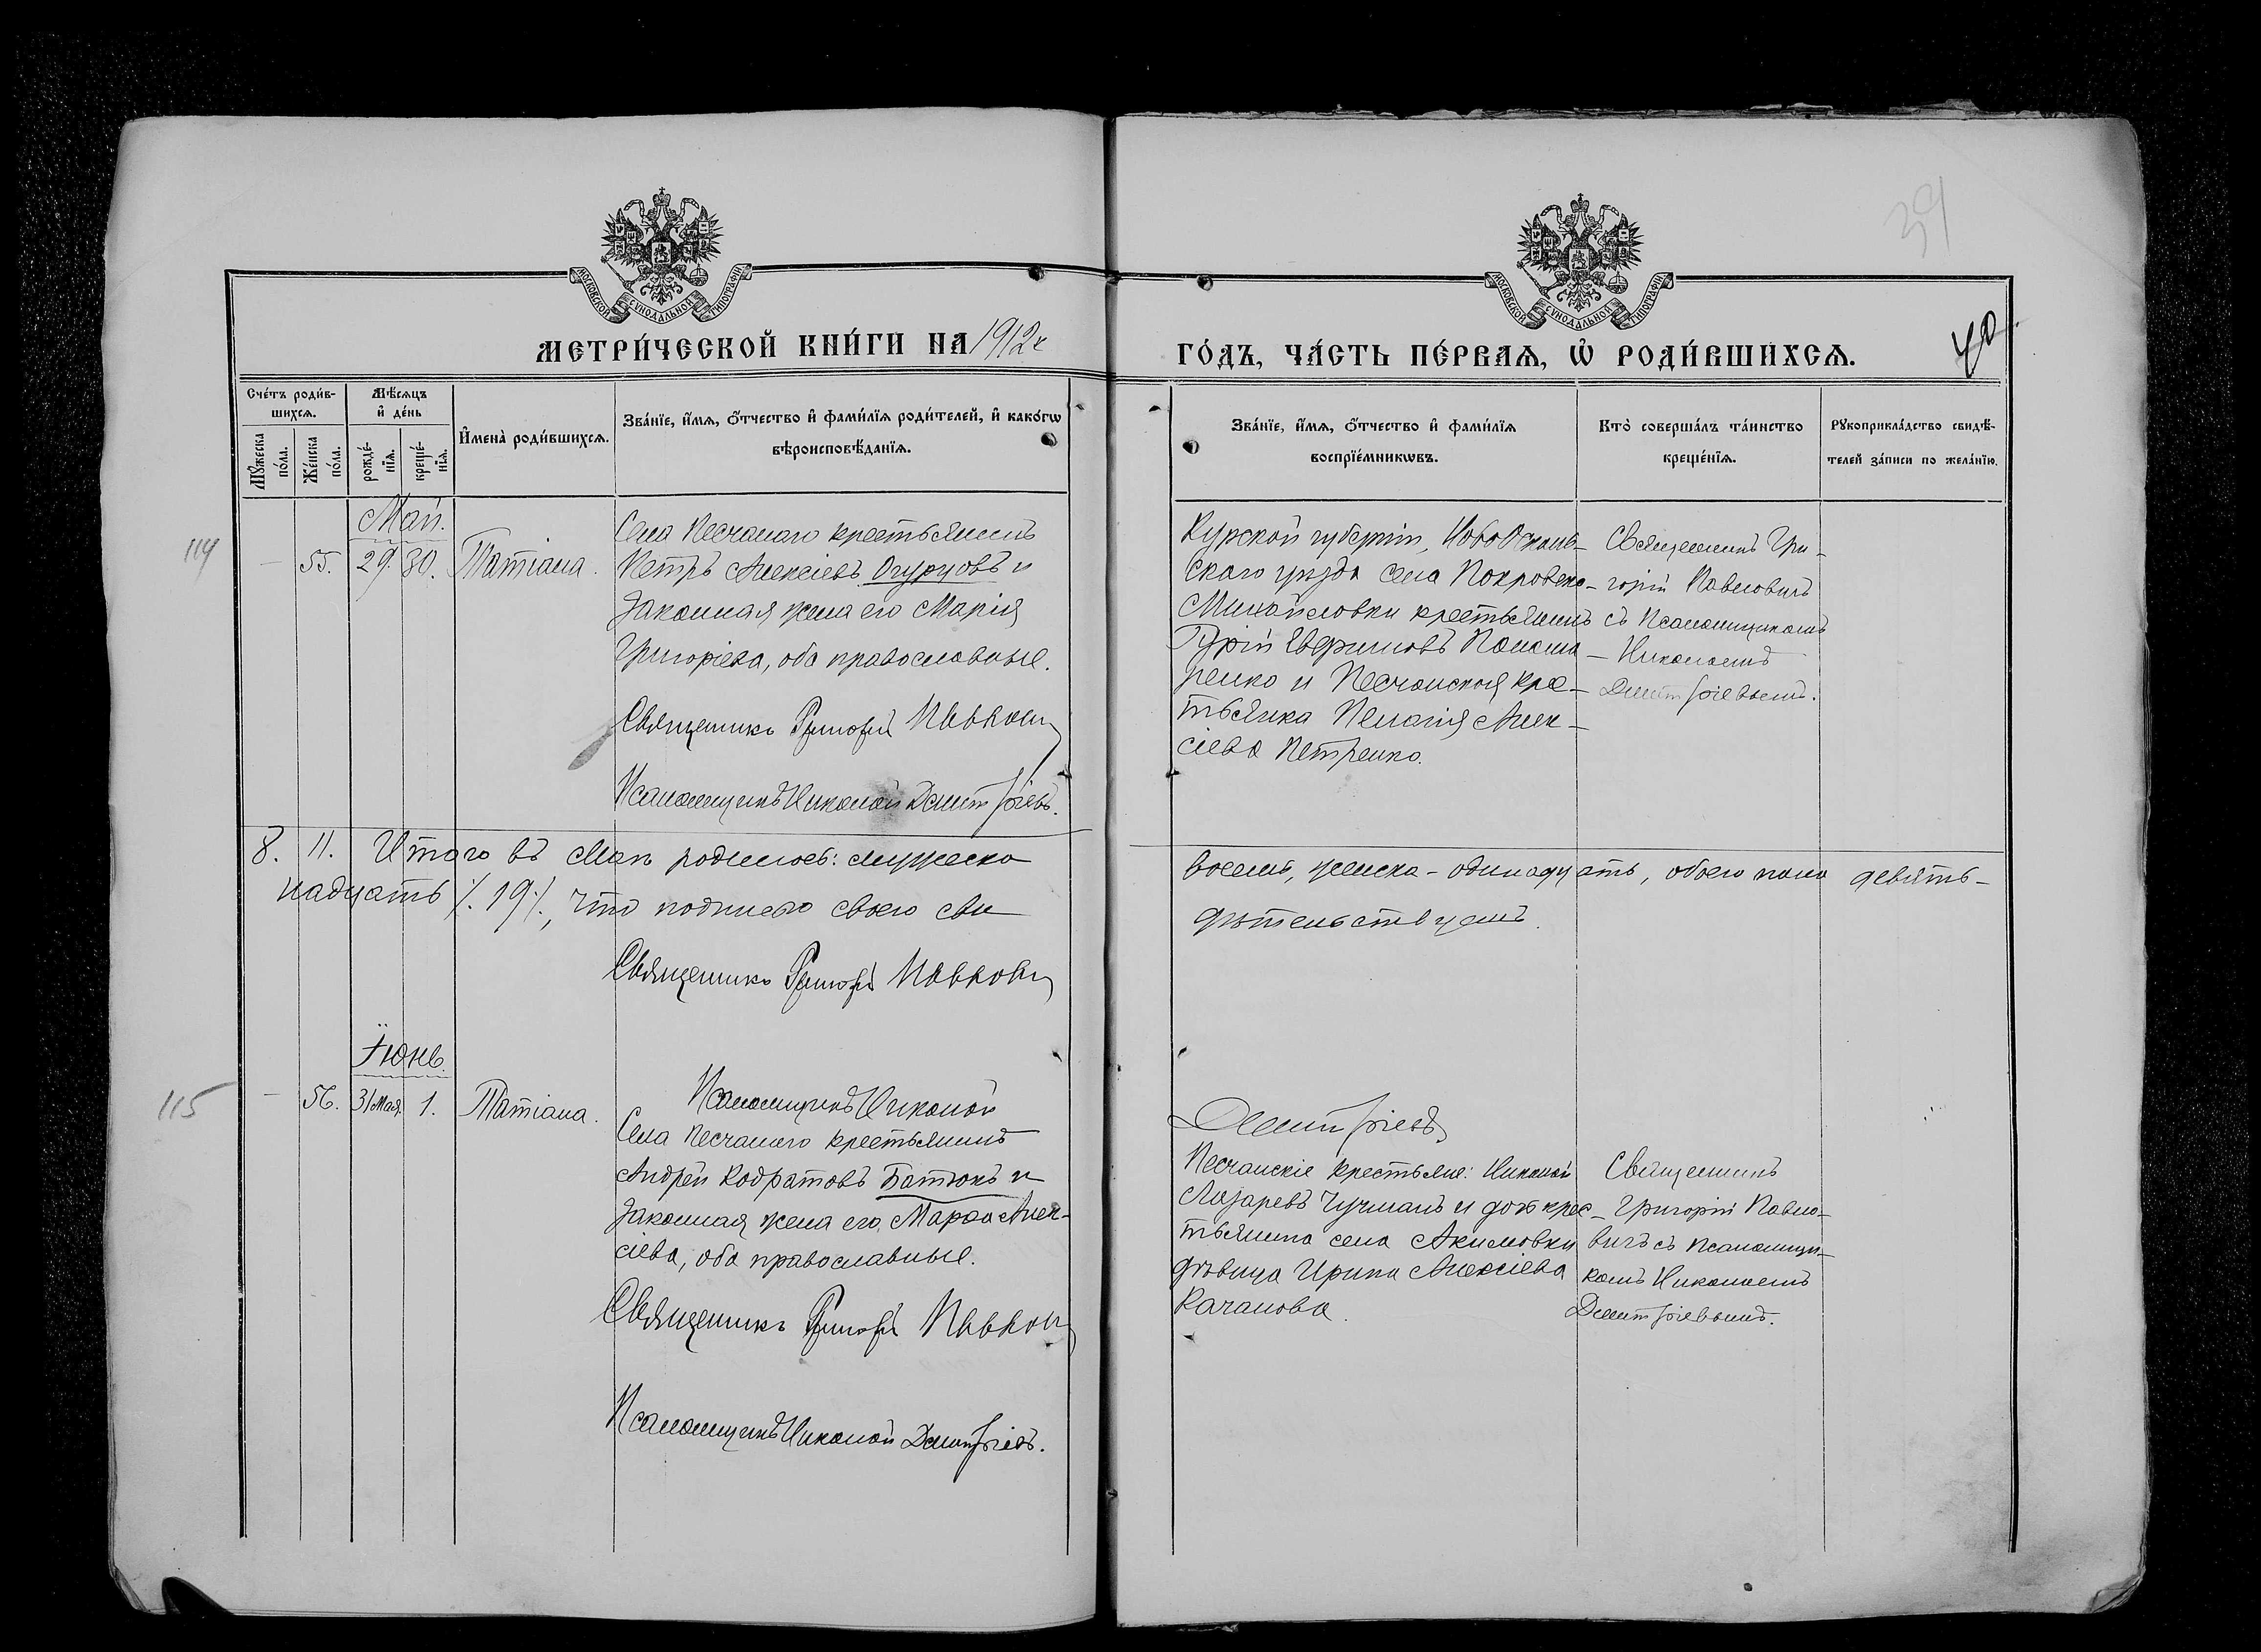 39
40.
МОСКОВСКОЙ СѴНОДАЛЬНОЙ ТИПОГРАФІИ
МОСКОВСКОЙ СѴНОДАЛЬНОЙ ТИПОГРАФІИ
МЕТРИ́ЧЕСКОЙ КНИ́ГИ НА 1912 г.
ГО́ДЪ, ЧА́СТЬ ПЕ́РВАѦ, Ѡ҆ РОДИ́ВШИХСѦ.
Сче́тъ роди́в-
шихсѧ.
Мꙋ́жеска по́ла.
Же́нска по́ла.
Мѣ́сѧцъ
и҆ де́нь
рожде́-
нїѧ.
креще́-
нїѧ.
И҆мена̀ роди́вшихсѧ.
Зва́нїе, и҆́мѧ, ѻ҆́тчество и҆ фами́лїѧ роди́телей, и҆ како́гѡ
вѣроисповѣ́данїѧ.
Зва́нїе, и҆́мѧ, ѻ҆́тчество и҆ фами́лїѧ
воспрїе́мникѡвъ.
Кто̀ соверша́лъ та́инство
креще́нїѧ.
Рꙋкоприкла́дство свидѣ́-
телей за́писи по жела́нїю.
114
Май.
— 55. 29. 30. Татіана.
Села Песчанаго крестьянинъ
Петръ Алексіевъ Огурцовъ и
законная жена его Марія
Григоріева, оба православные.
Священникъ Григорій Павлович
Псаломщикъ Николай Димитріевъ.
Курской губерніи, Ново Осколь-
скаго уѣзда села Покровско-
Михайловки крестьянинъ
Гурій Евфимовъ
и Песчанская кре-
стьянка Пелагія Алек-
сіева Петренко.
Священникъ Гри-
горій Павловичъ
съ Псаломщикомъ
Николаемъ
Димитріевымъ.
8. 11. Итого въ Маѣ родилось: мужеска
восемь, женска - одинадцать, обоего пола девять-
надцать /. 19 /., что подписью своею сви
дѣтельствуемъ.
Священникъ Григорій Павлович
Псаломщикъ Николай
Димитріевъ
115
Іюнь.
— 56. 31 Мая. 1. Татіана.
Села Песчанаго крестьянинъ
Андрей Кодратовъ Батюкъ и
законная жена его Марѳа Алек-
сіева, оба православные.
Священникъ Григорій Павлович
Псаломщикъ Николай Димитріевъ.
Песчанскіе крестьяне: Николай
Лазаревъ Чучманъ и дочь крес-
тьянина села Акимовки
дѣвица Ирина Алексіева
Качанова.
Священникъ
Григорій Павло-
вичъ съ псаломщи-
комъ Николаемъ
Димитріевымъ.